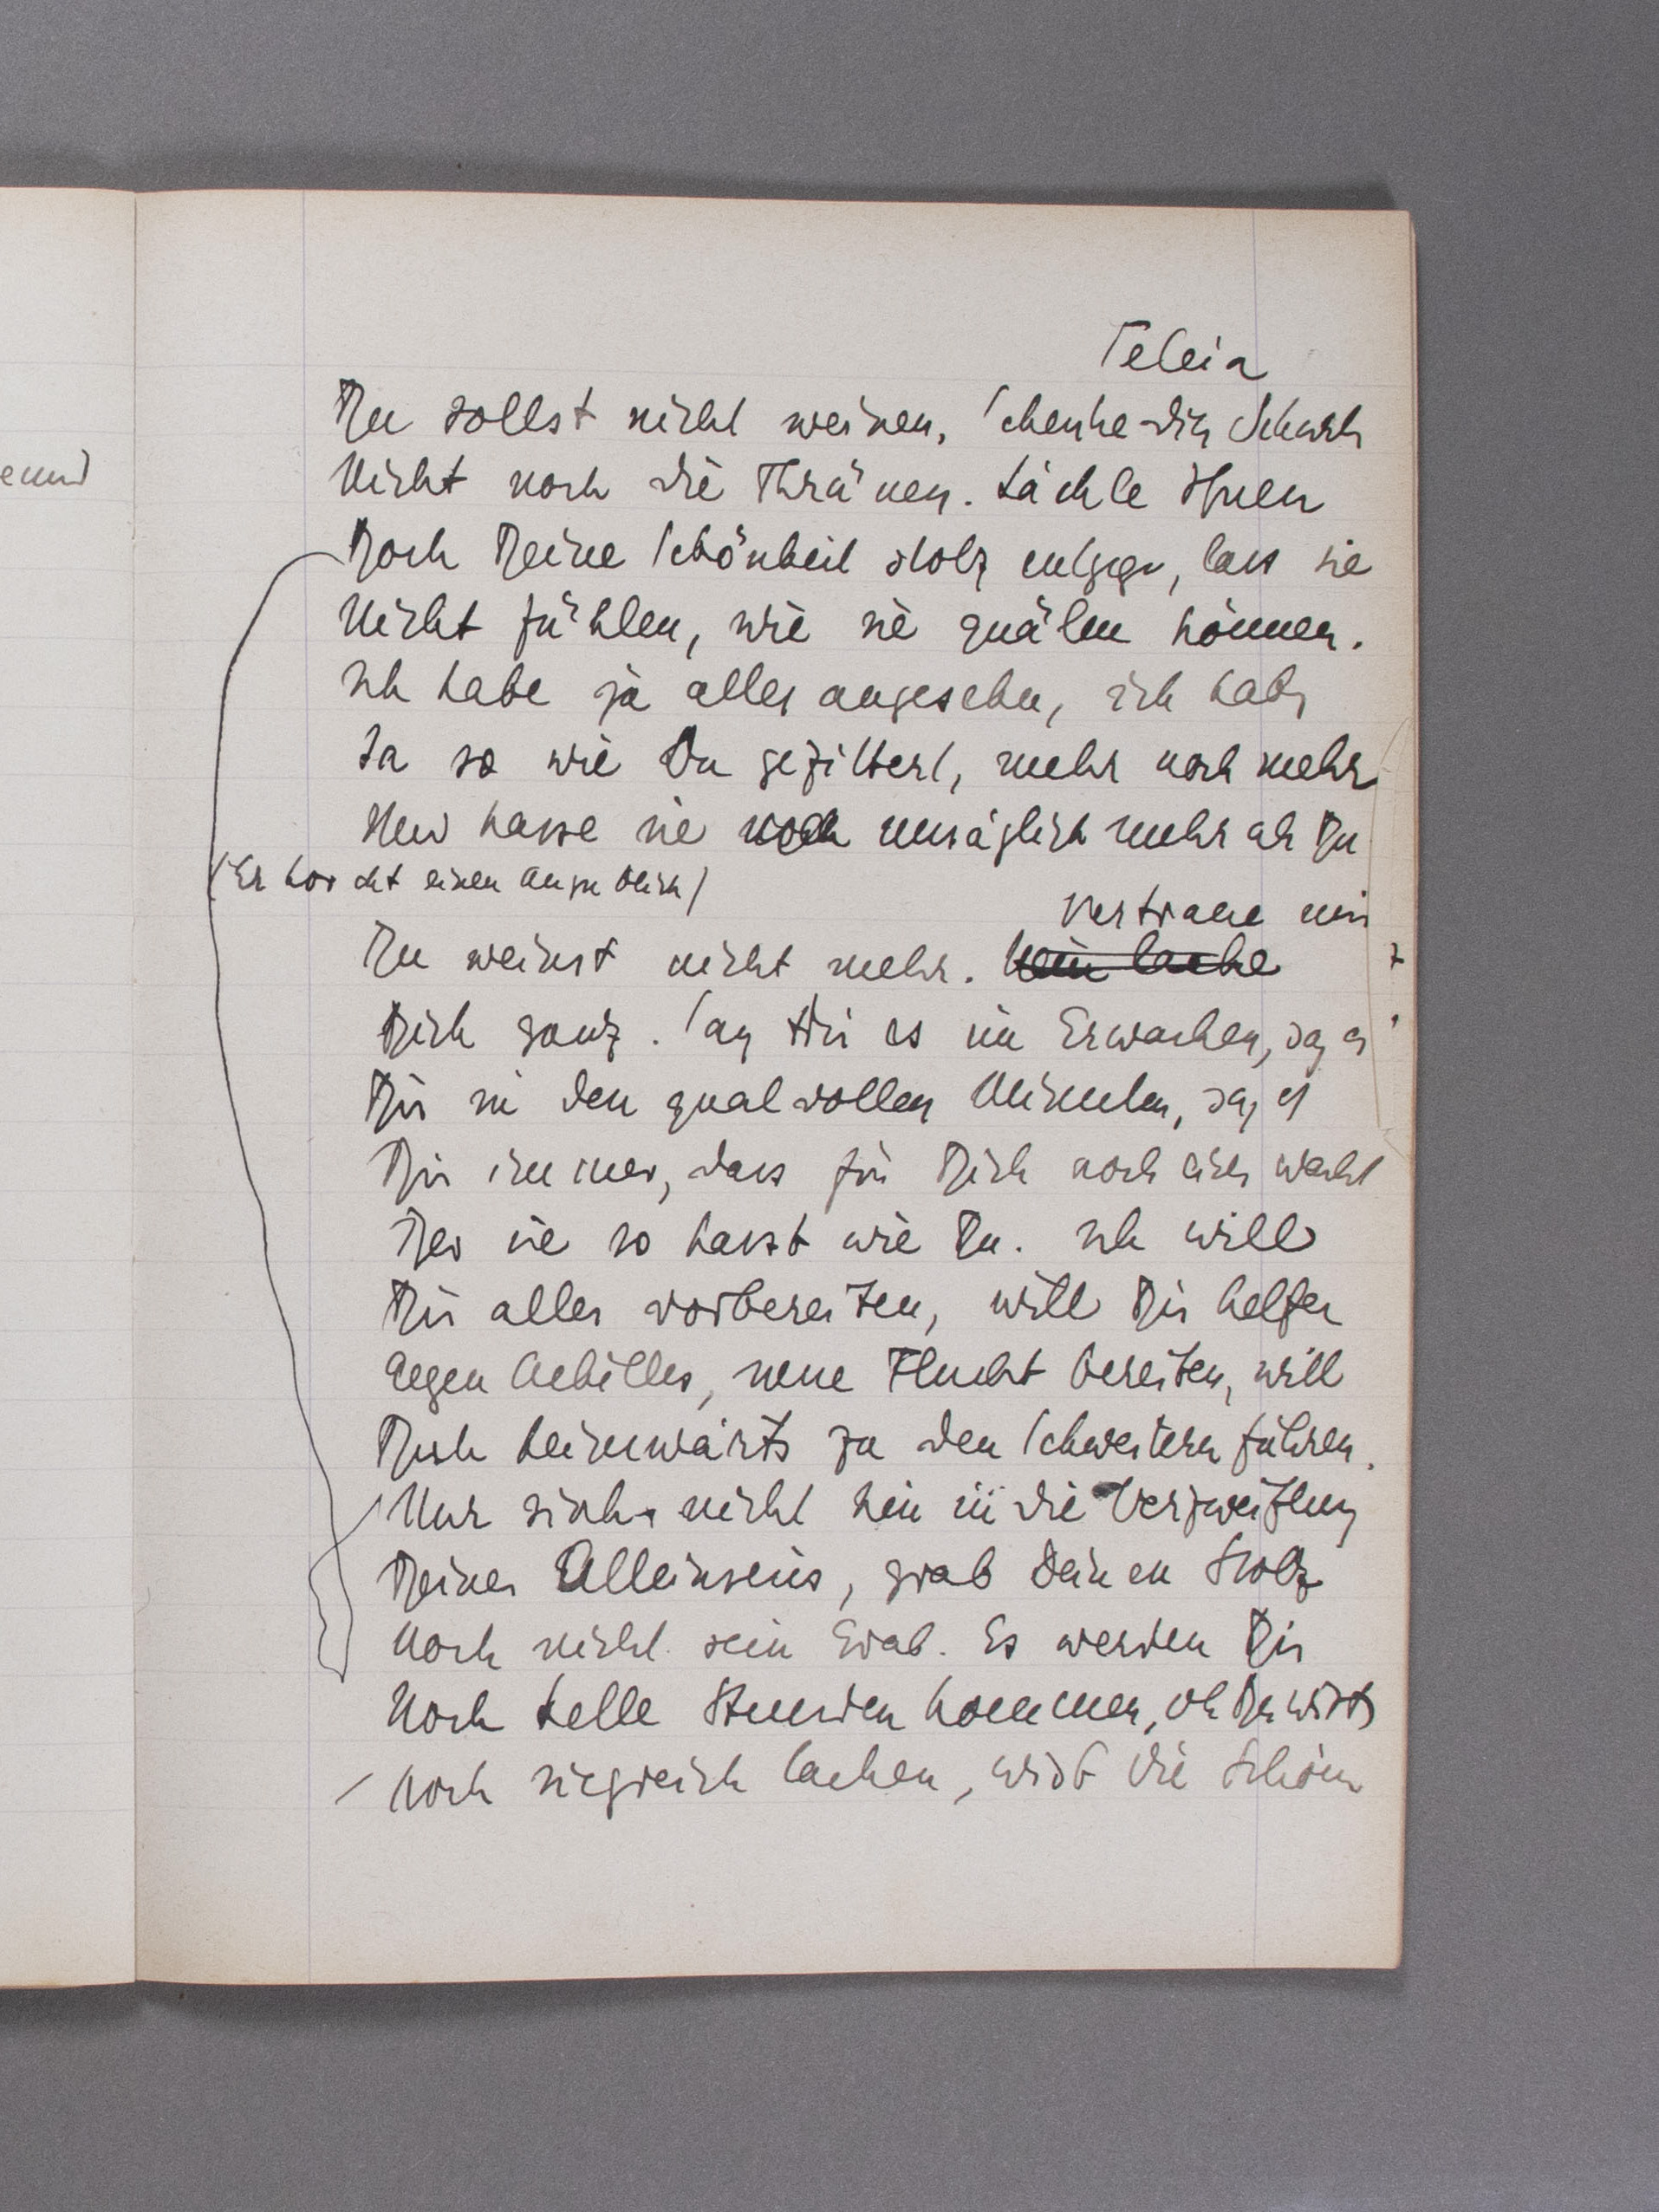 Teleia
Du sollst nicht weinen. Schenke den Schurken
Nicht noch die Thränen. Lächle Ihnen
Doch Deine Schönheit stolz entgegen, lass sie
Nicht fühlen, wie sie quälen können.
Ich habe ja alles angesehn, ich habe
Ja so wie Du gezittert, mehr noch mehr
Und hasse sie noch unsäglich mehr als Du
(Er horcht einen Augenblick)
Vertraue mir
Du weinst nicht mehr. Nein lache
Dich ganz. Sag Dir es im Erwachen, sag es
Dir in den qualvollen Minuten, sag es
Dir immer, dass für Dich noch einer wacht
Der sie so hasst wie Du. Ich will
Dir alles vorbereiten, will Dir helfen
Gegen Achilles, neue Flucht bereiten, will
Dich heimwärts zu den Schwestern führen.
Nur sink nicht hin in die Verzweiflung
Deines Alleinseins, grab deinen Stolz
Noch nicht sein Grab. Es werden Dir
Noch helle Stunden kommen, oh Du wirst
Noch siegreich lachen, wirst die Schöne